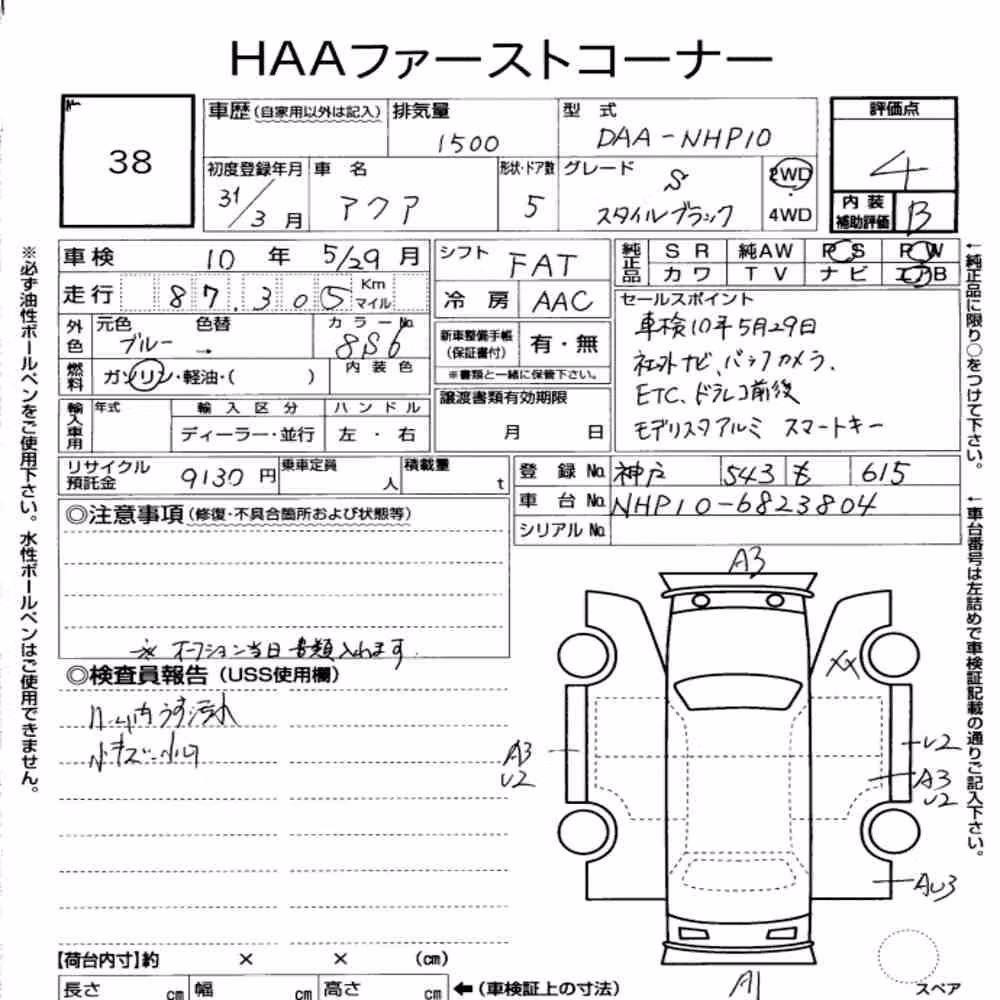 HAAファーストコーナー
38
車歴(自家用以外は記入) 排気量 1500
型 式 DAA-NHP10
評価点 4
初度登録年月 31/3月
車 名 アクア
形状・ドア数 5
グレード S スタイルブラック
2WD
4WD
内装補助評価 B
車検 10年 5/29月
シフト FAT
純正品 SR 純AW PS PW
カワ TV ナビ エアB
走行 87,305 Km マイル
冷房 AAC
セールスポイント
車検10年5月29日
社外ナビ、バックカメラ、
ETC、ドラレコ前後
モデリスタアルミ スマートキー
外色 元色 ブルー → 色替
カラーNo. 8S6
新車整備手帳(保証書付) 有・無
※書類と一緒に保管下さい。
燃料 ガソリン・軽油・( )
内装色
譲渡書類有効期限
月 日
輸入車用 年式 輸入区分 ハンドル
ディーラー・並行 左・右
リサイクル預託金 9130円
乗車定員 人
積載量 t
登録No. 神戸 543 も 615
車台No. NHP10-6823804
シリアルNo.
◎注意事項(修復・不具合箇所および状態等)
※ オークション当日書類入れます
◎検査員報告(USS使用欄)
ルーム内うす汚れ
小キズ・小凹
A3
XX
A3
U2
U2
A3
U2
AU3
A1
スペア
【荷台内寸】約 × × (cm)
長さ cm 幅 cm 高さ cm ←(車検証上の寸法)
※必ず油性ボールペンをご使用下さい。水性ボールペンはご使用できません。
←純正品に限り○をつけて下さい。
←車台番号は左詰めで車検証記載の通りご記入下さい。